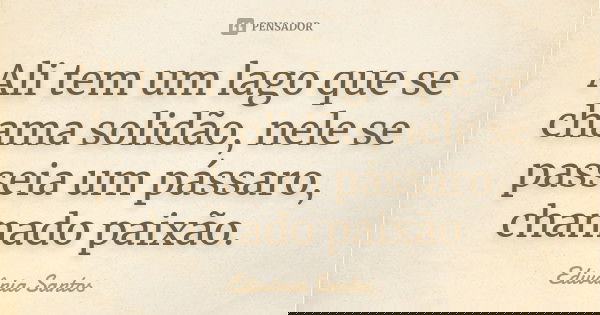 PENSADOR
Ali tem um lago que se
chama solidão, nele se
passeia um pássaro,
chamado paixão.
Edivânia Santos